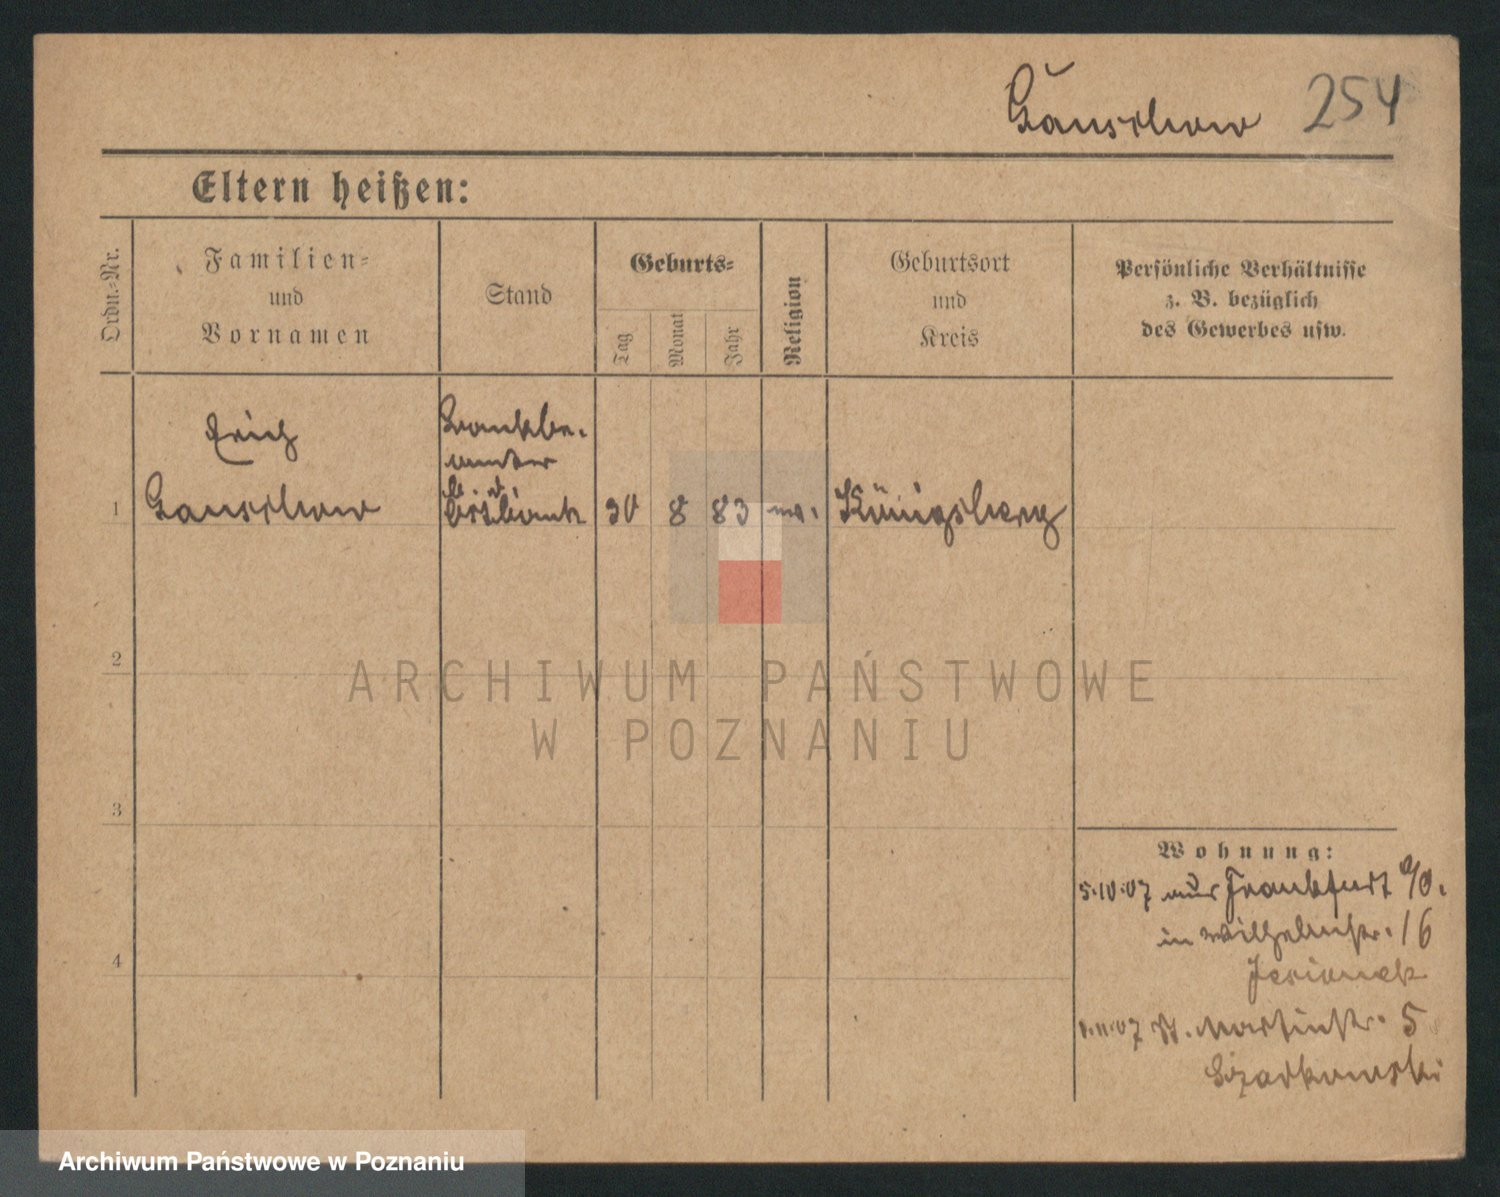 Gauschow 254
Eltern heißen:
Ordn.-Nr.
Familien-
und
Vornamen
Stand
Geburts-
Tag
Monat
Jahr
Religion
Geburtsort
und
Kreis
Persönliche Verhältnisse
z. B. bezüglich
des Gewerbes usw.
Erich
Bankbe-
amter
1 Gauschow
30 8 83 Königsberg
2
3
4
ARCHIWUM PAŃSTWOWE
W POZNANIU
Wohnung:
5.10.07 aus Frankfurt a/O.
in Wilhelmstr. 16
Jesionek
1.11.07 St. Martinstr. 5
Archiwum Państwowe w Poznaniu